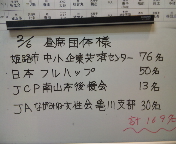 2/6 昼席団体様
姫路市中小企業共済センター 76名
日本フルハップ 50名
JCP南山本後援会 13名
JAながみね女性会亀川支部 30名
計169名